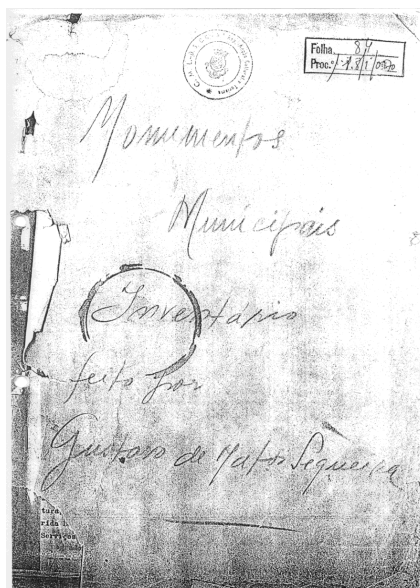 Folha 84
Monumentos
Municipais
Inventário
feito por
Gustavo de Matos Sequeira
tura,
rida h
Serviços